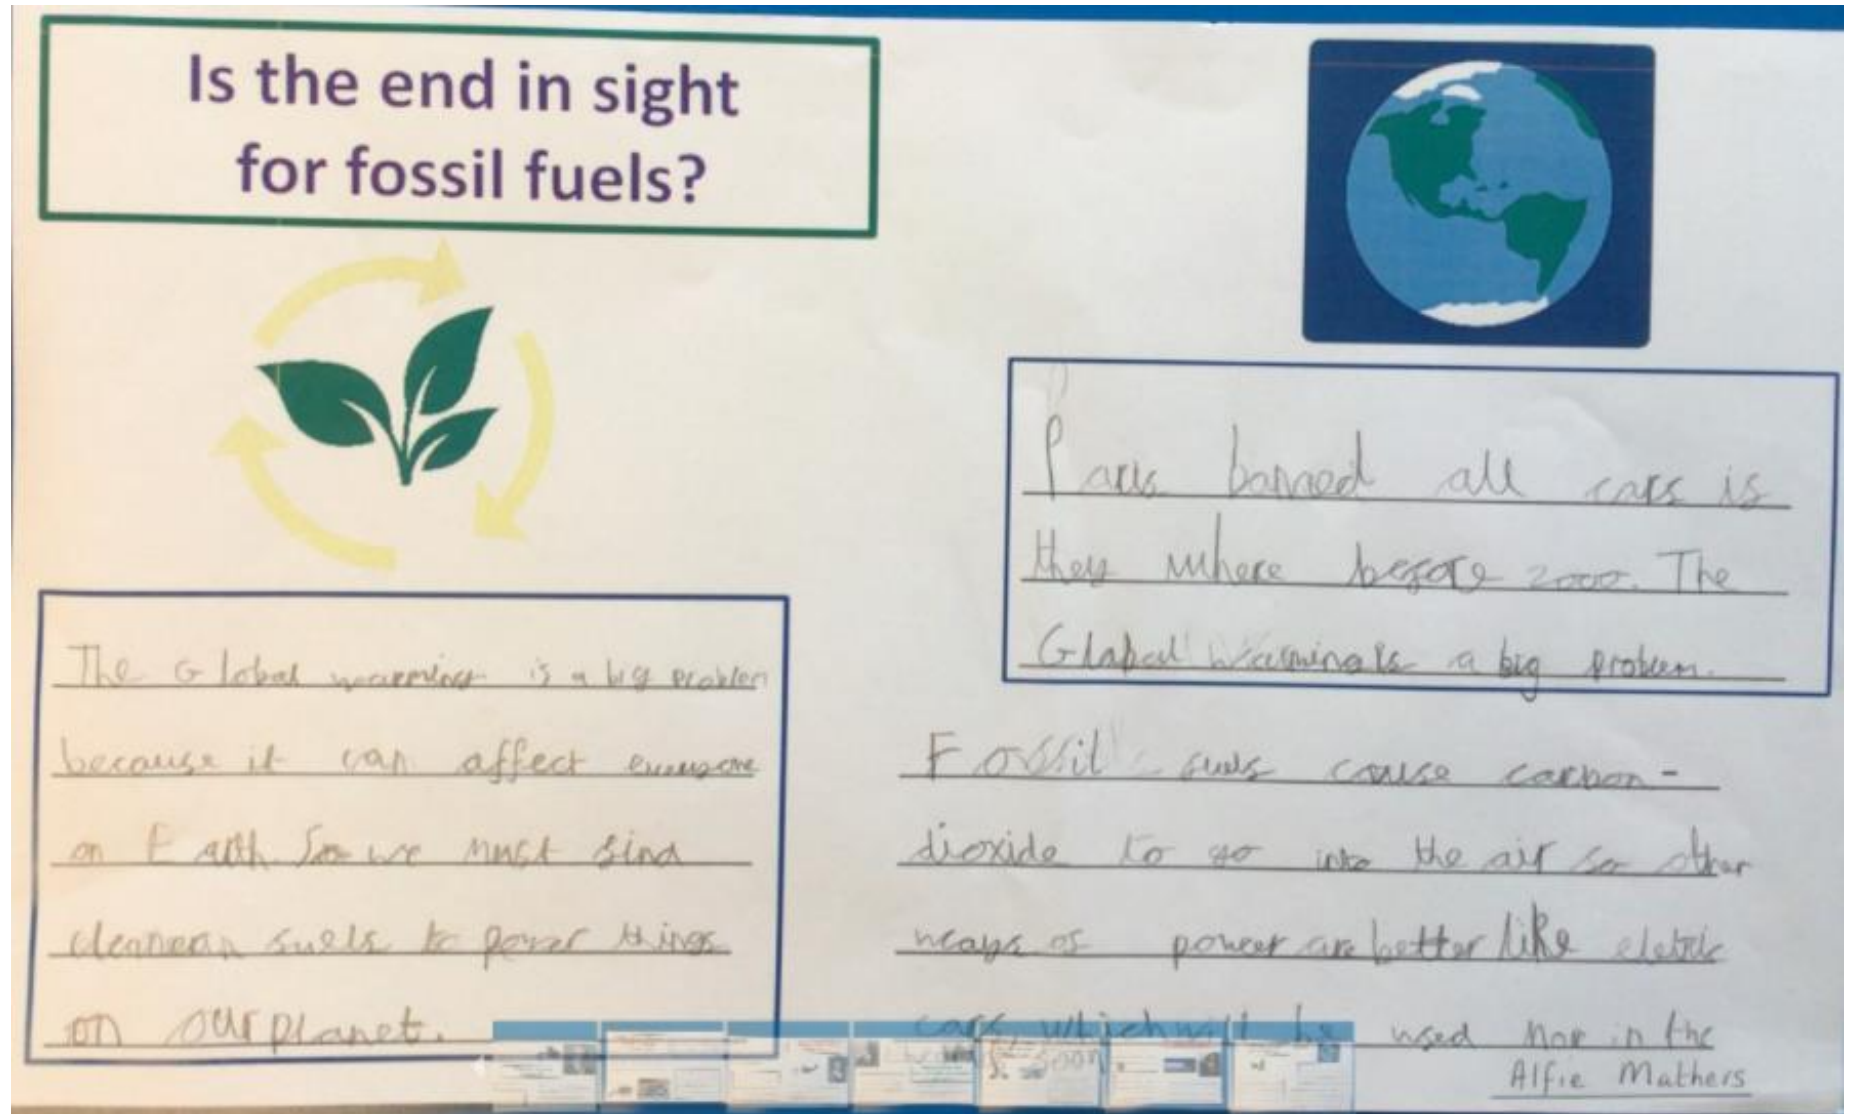 Is the end in sight
for fossil fuels?
Paris banned all cars is
they where before 2000. The
Glabal Warming is a big problem.
The Global warming is a big problem
because it can affect everyone
on Earth. So we must find
cleanear fuels to power things
on our planet.
Fossil fuels cause carbon-
dioxide to go into the air so other
ways of power are better like eletric
cars, which will be used mor in the
soon
Alfie Mathers